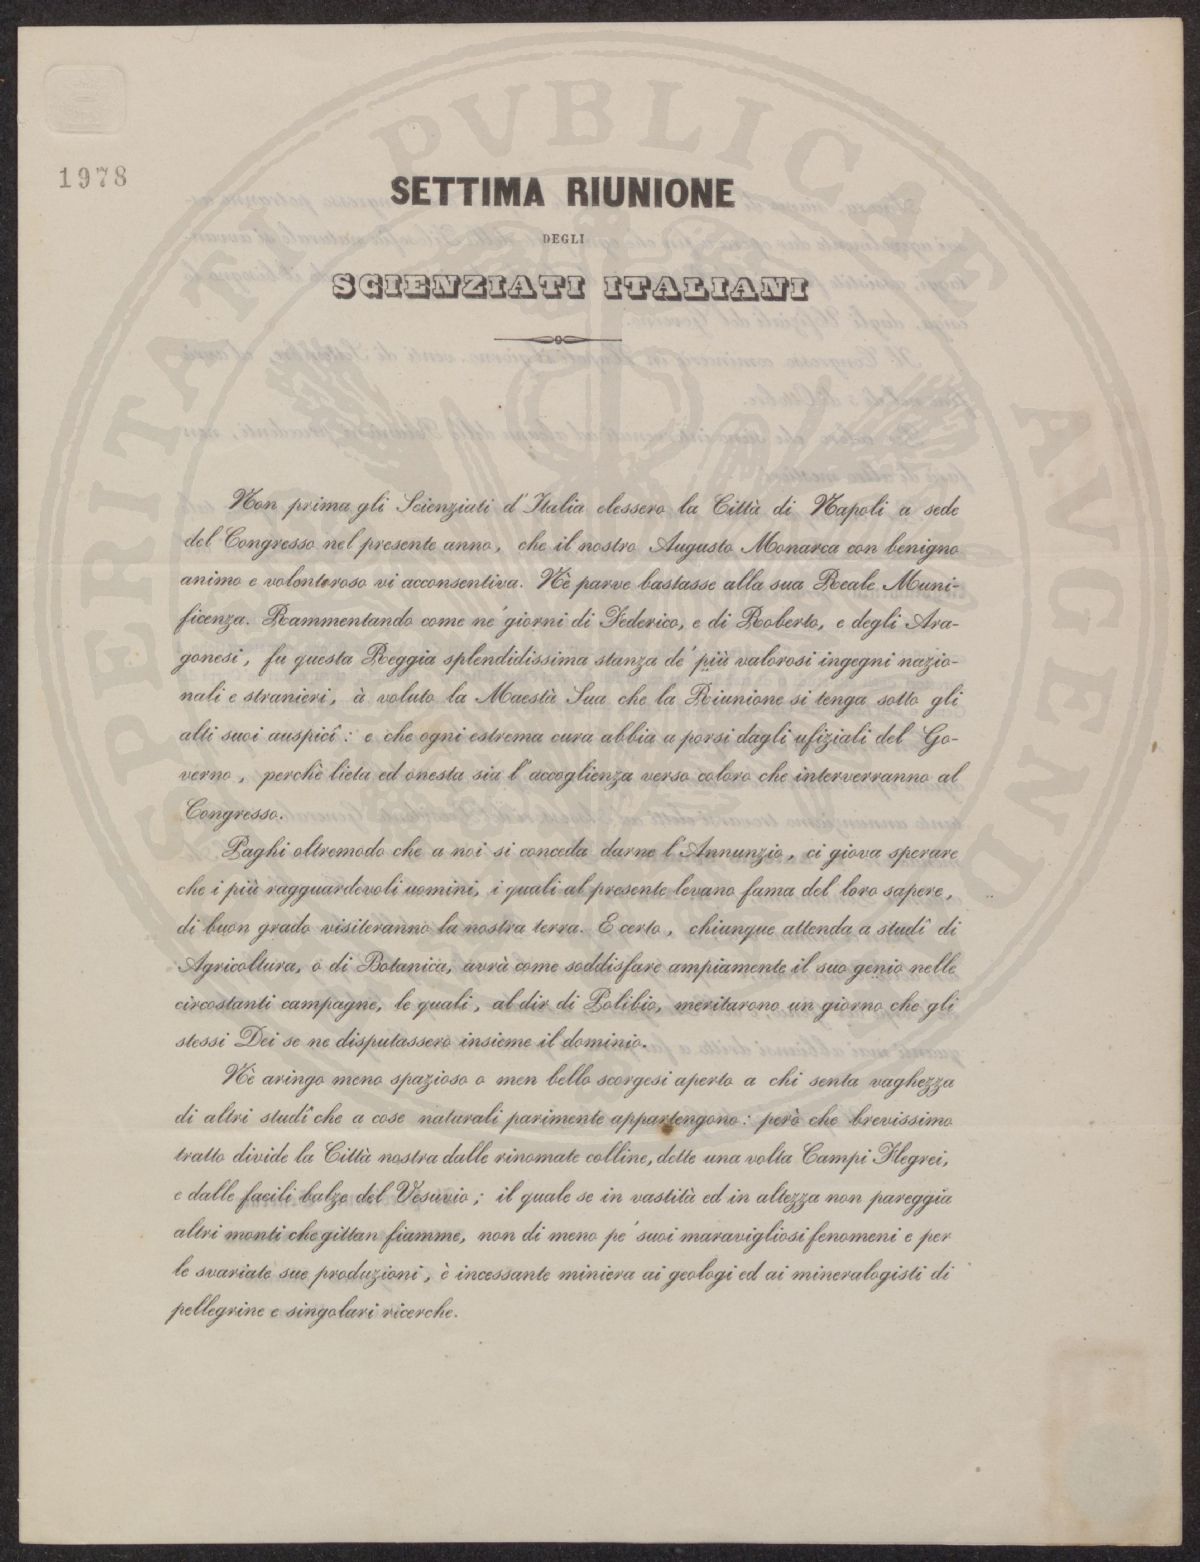 PROSPERITATI PVBLICAE AVGENDAE
1978
SETTIMA RIUNIONE
DEGLI
SCIENZIATI ITALIANI
Non prima gli Scienziati d'Italia elessero la Città di Napoli a sede
del Congresso nel presente anno, che il nostro Augusto Monarca con benigno
animo e volonteroso vi acconsentiva. Nè parve bastasse alla sua Reale Muni-
ficenza. Rammentando come ne' giorni di Federico, e di Roberto, e degli Ara-
gonesi, fu questa Reggia splendidissima stanza de' più valorosi ingegni nazio-
nali e stranieri, à voluto la Maestà Sua che la Riunione si tenga sotto gli
alti suoi auspicî: e che ogni estrema cura abbia a porsi dagli ufiziali del Go-
verno, perchè lieta ed onesta sia l'accoglienza verso coloro che interverranno al
Congresso.
Paghi oltremodo che a noi si conceda darne l'Annunzio, ci giova sperare
che i più ragguardevoli uomini, i quali al presente levano fama del loro sapere,
di buon grado visiteranno la nostra terra. E certo, chiunque attenda a studî di
Agricoltura, o di Botanica, avrà come soddisfare ampiamente il suo genio nelle
circostanti campagne, le quali, al dir di Polibio, meritarono un giorno che gli
stessi Dei se ne disputassero insieme il dominio.
Nè aringo meno spazioso o men bello scorgesi aperto a chi senta vaghezza
di altri studî che a cose naturali parimente appartengono: però che brevissimo
tratto divide la Città nostra dalle rinomate colline, dette una volta Campi Flegrei,
e dalle facili balze del Vesuvio; il quale se in vastità ed in altezza non pareggia
altri monti che gittan fiamme, non di meno pe' suoi maravigliosi fenomeni e per
le svariate sue produzioni, è incessante miniera ai geologi ed ai mineralogisti di
pellegrine e singolari ricerche.